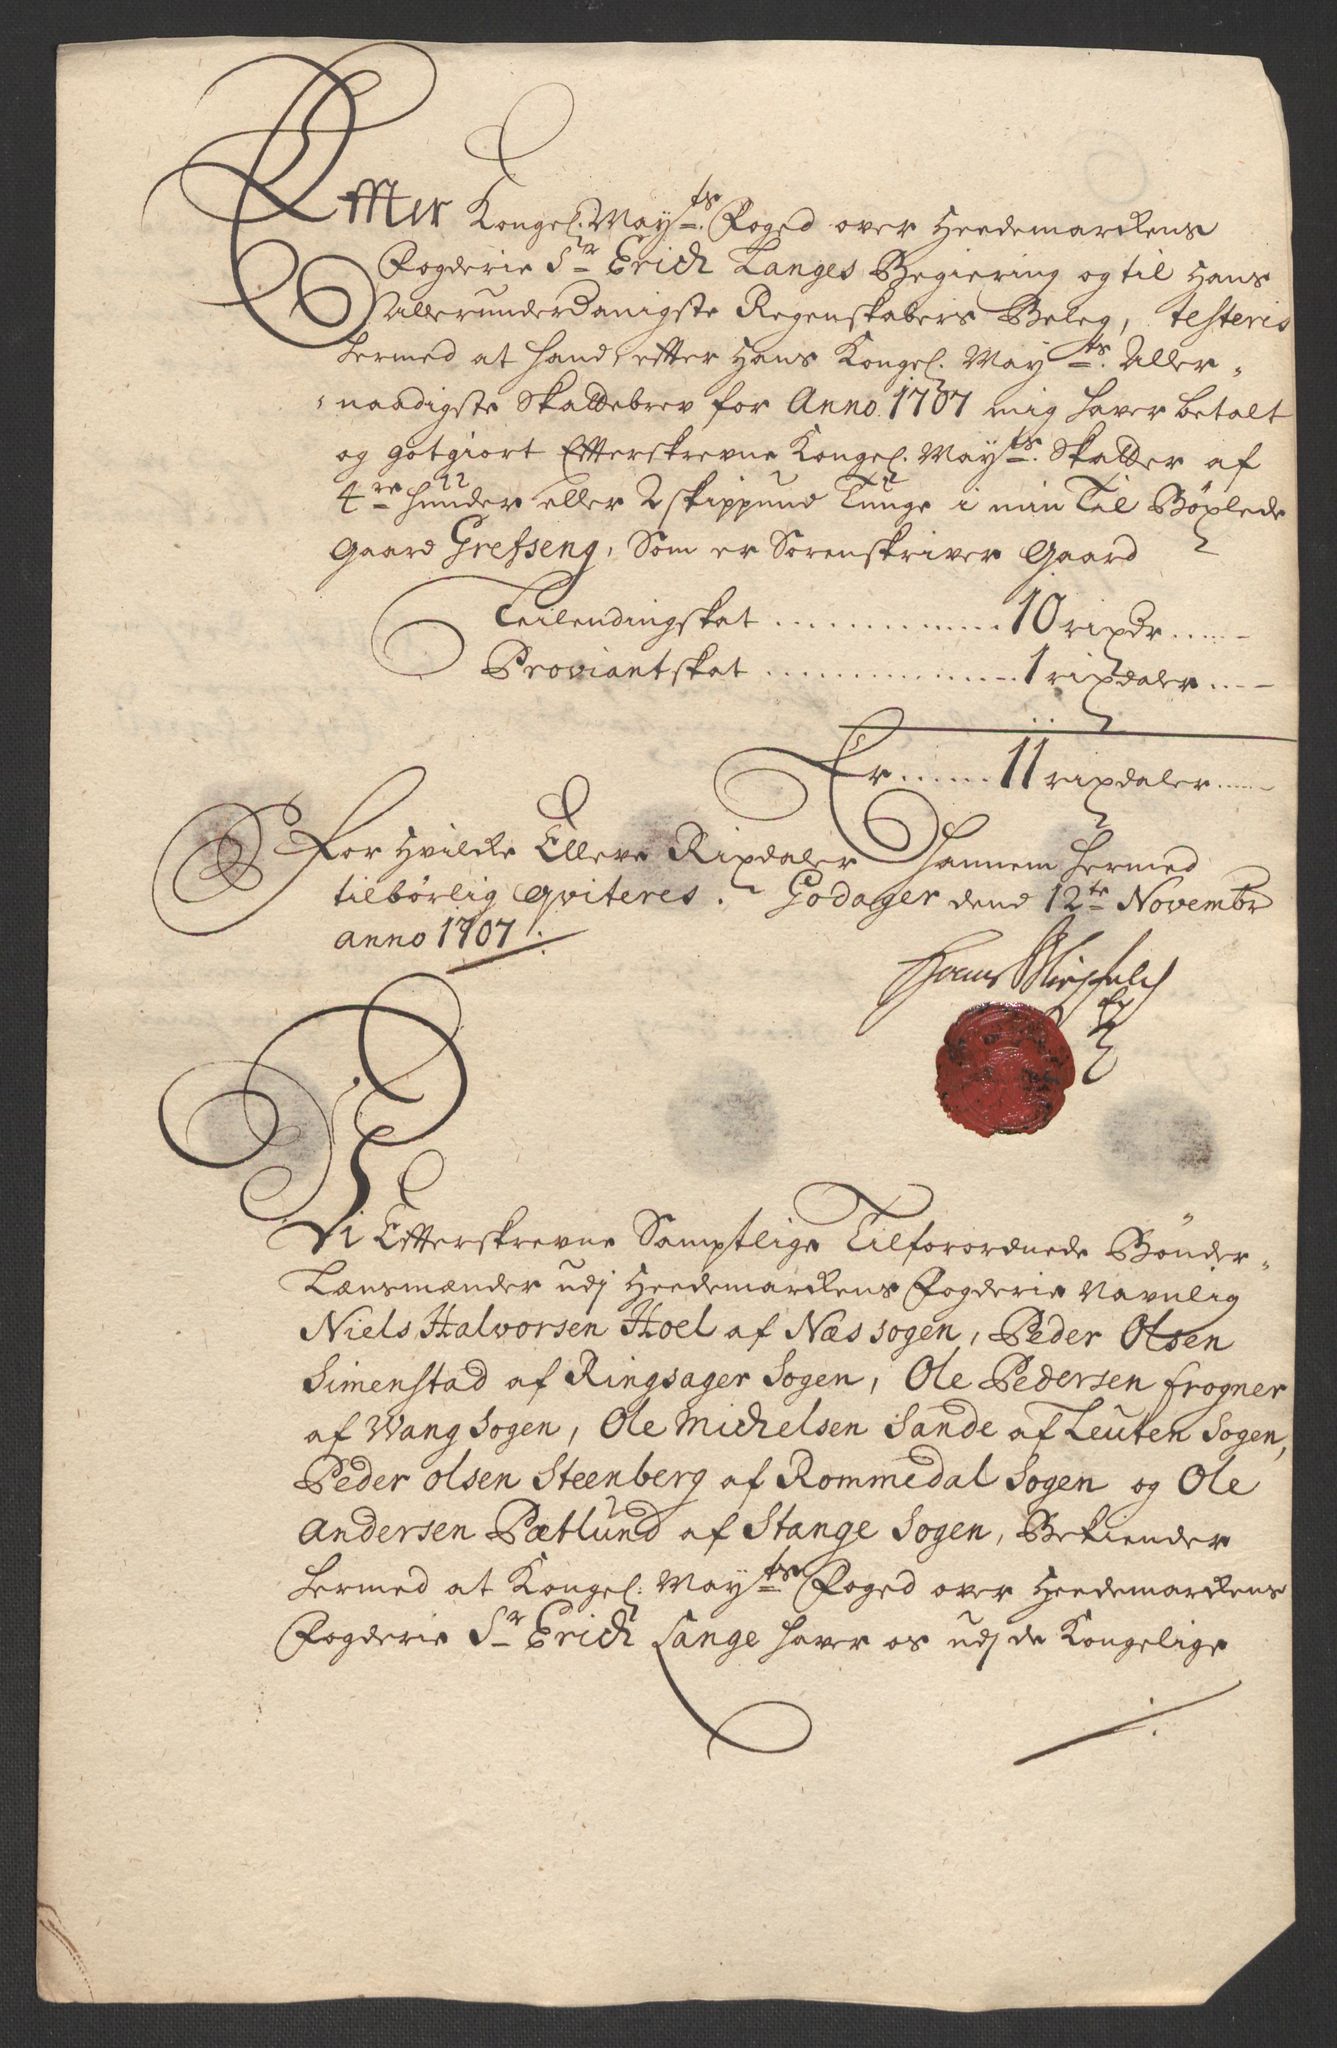 Effter Kongel. May.ts Foged over Heedemarckens
Fogderie Sr Erich Langes Begiering og til Hans
Allerunderdanigste Regenskabers Beleg, testeris
hermed at hand, effter Hans Kongel. May.ts Aller-
naadigste Skattebrev for Anno 1707 mig haver betalt
og gotgiort Effterskrevne Kongel. May.ts Skatter af
4re hunder eller 2 skippund Tunge i min Til Böxlede
Gaard Grefseng, Som er Sorenskriver Gaard
Leilendingskat .............. 10 rixdr ......
Proviantskat .............. 1 rixdaler ....
Er ...... 11 rixdaler ......
For Hvilcke Elleve Rixdaler Hannem hermed
tilbörlig qviteres. Godager dend 12te Novembr
anno 1707.
Hans
Vi Effterskrevne Samptlige Tilforordnede Bönder-
Lænsmænder udj Heedemarckens Fogderie Navnlig
Niels Halvorsen Hoel af Næs sogen, Peder Olsen
Simenstad af Ringsager Sogen, Ole Pedersen frogner
af Wang Sogen, Ole Michelsen Sande af Leuten Sogen,
Peder Olsen Steenberg af Rommedal Sogen og Ole
Andersen Pætlund af Stange Sogen, Bekiender
hermed at Kongel: May.ts Foged over Heedemarckens
Fogderie Sr Erich Lange haver os udj de Kongelige